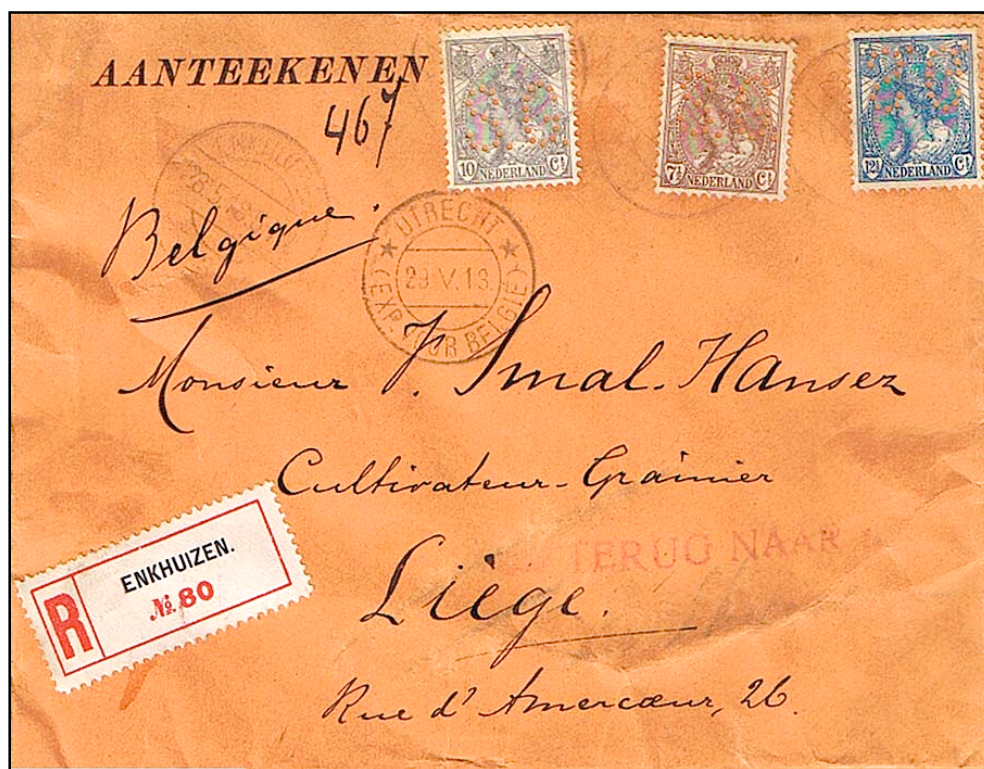 AANTEEKENEN
467
10 Ct
NEDERLAND
7½ Ct
NEDERLAND
12½ Ct
NEDERLAND
Belgique.
UTRECHT
29 V.13.
(EXP. VOUR BELGIË)
Monsieur F. Smal-Hansez
Cultivateur-Grainier
TERUG NAAR
Liège.
Rue d'Amercœur, 26.
R
ENKHUIZEN.
No. 80